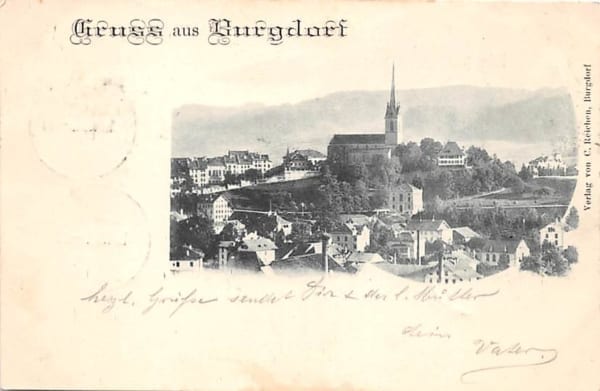 Gruss aus Burgdorf
Verlag von C. Reichen, Burgdorf
herzl. Grüsse sendet Dir & der l. Mutter
Dein
Vater.